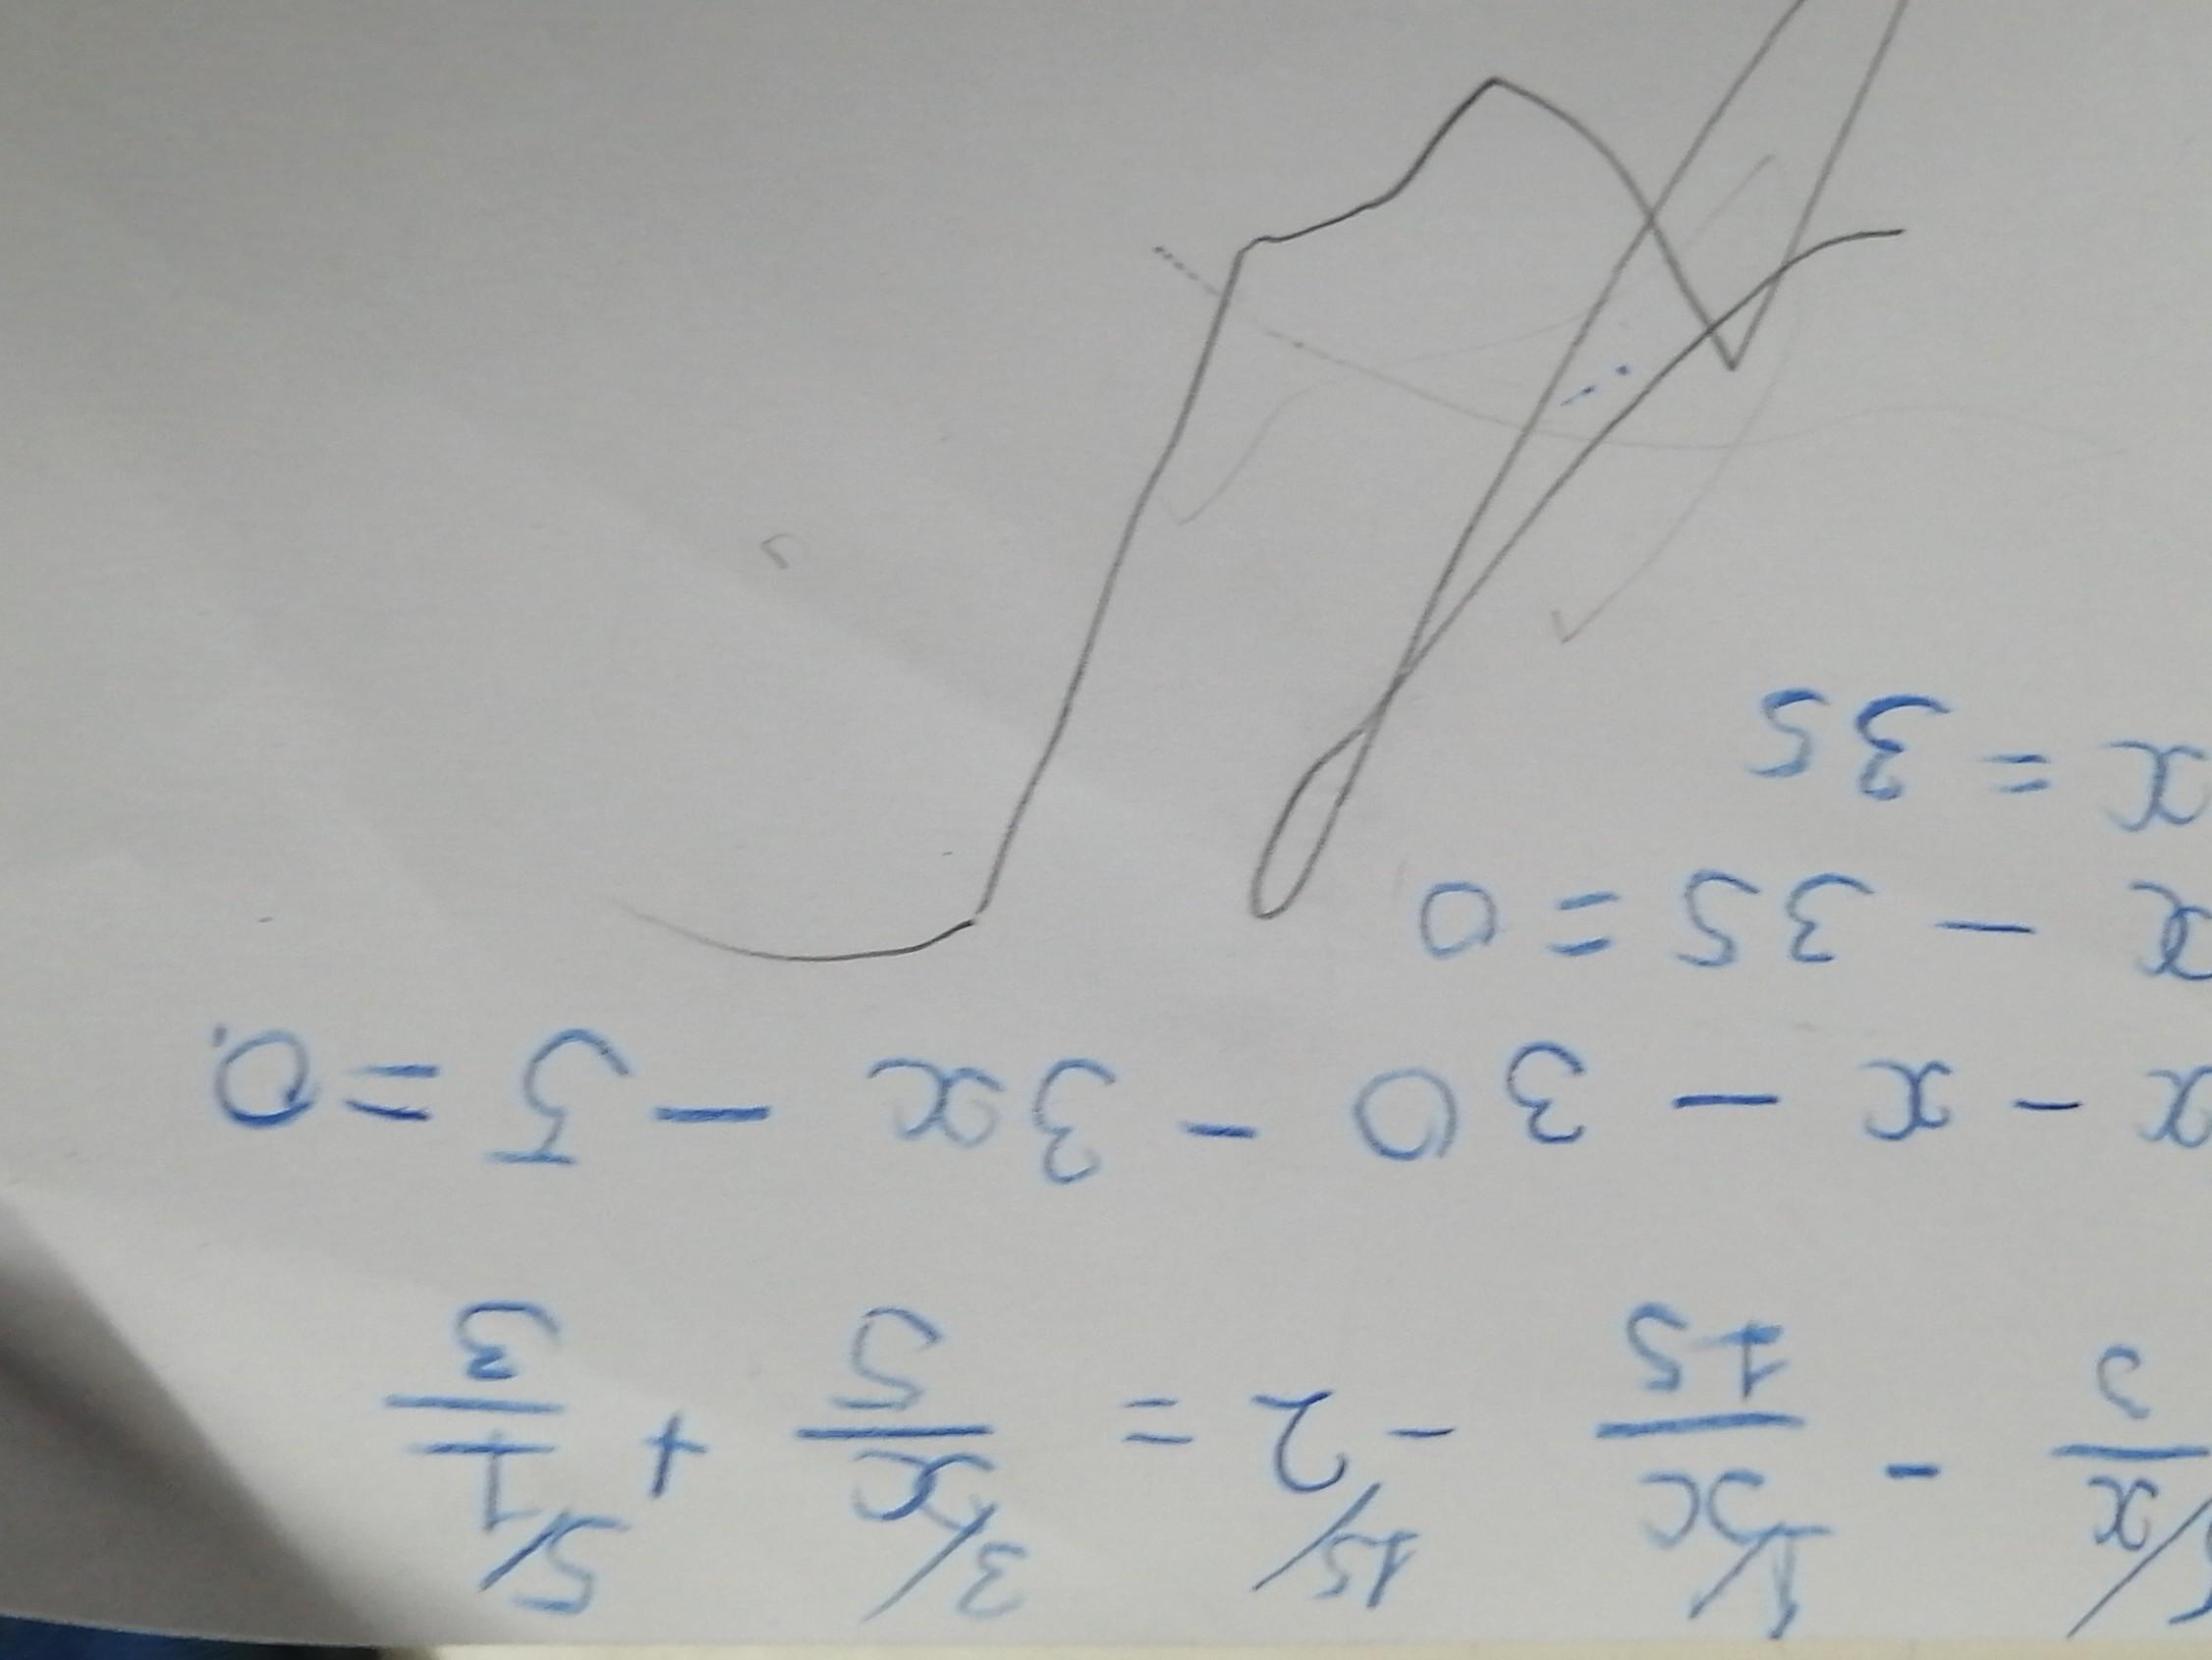 x/3 - x/15 - 2 = x/5 + 1/3
x - x - 30 - 3x - 5 = 0.
x - 35 = 0
x = 35